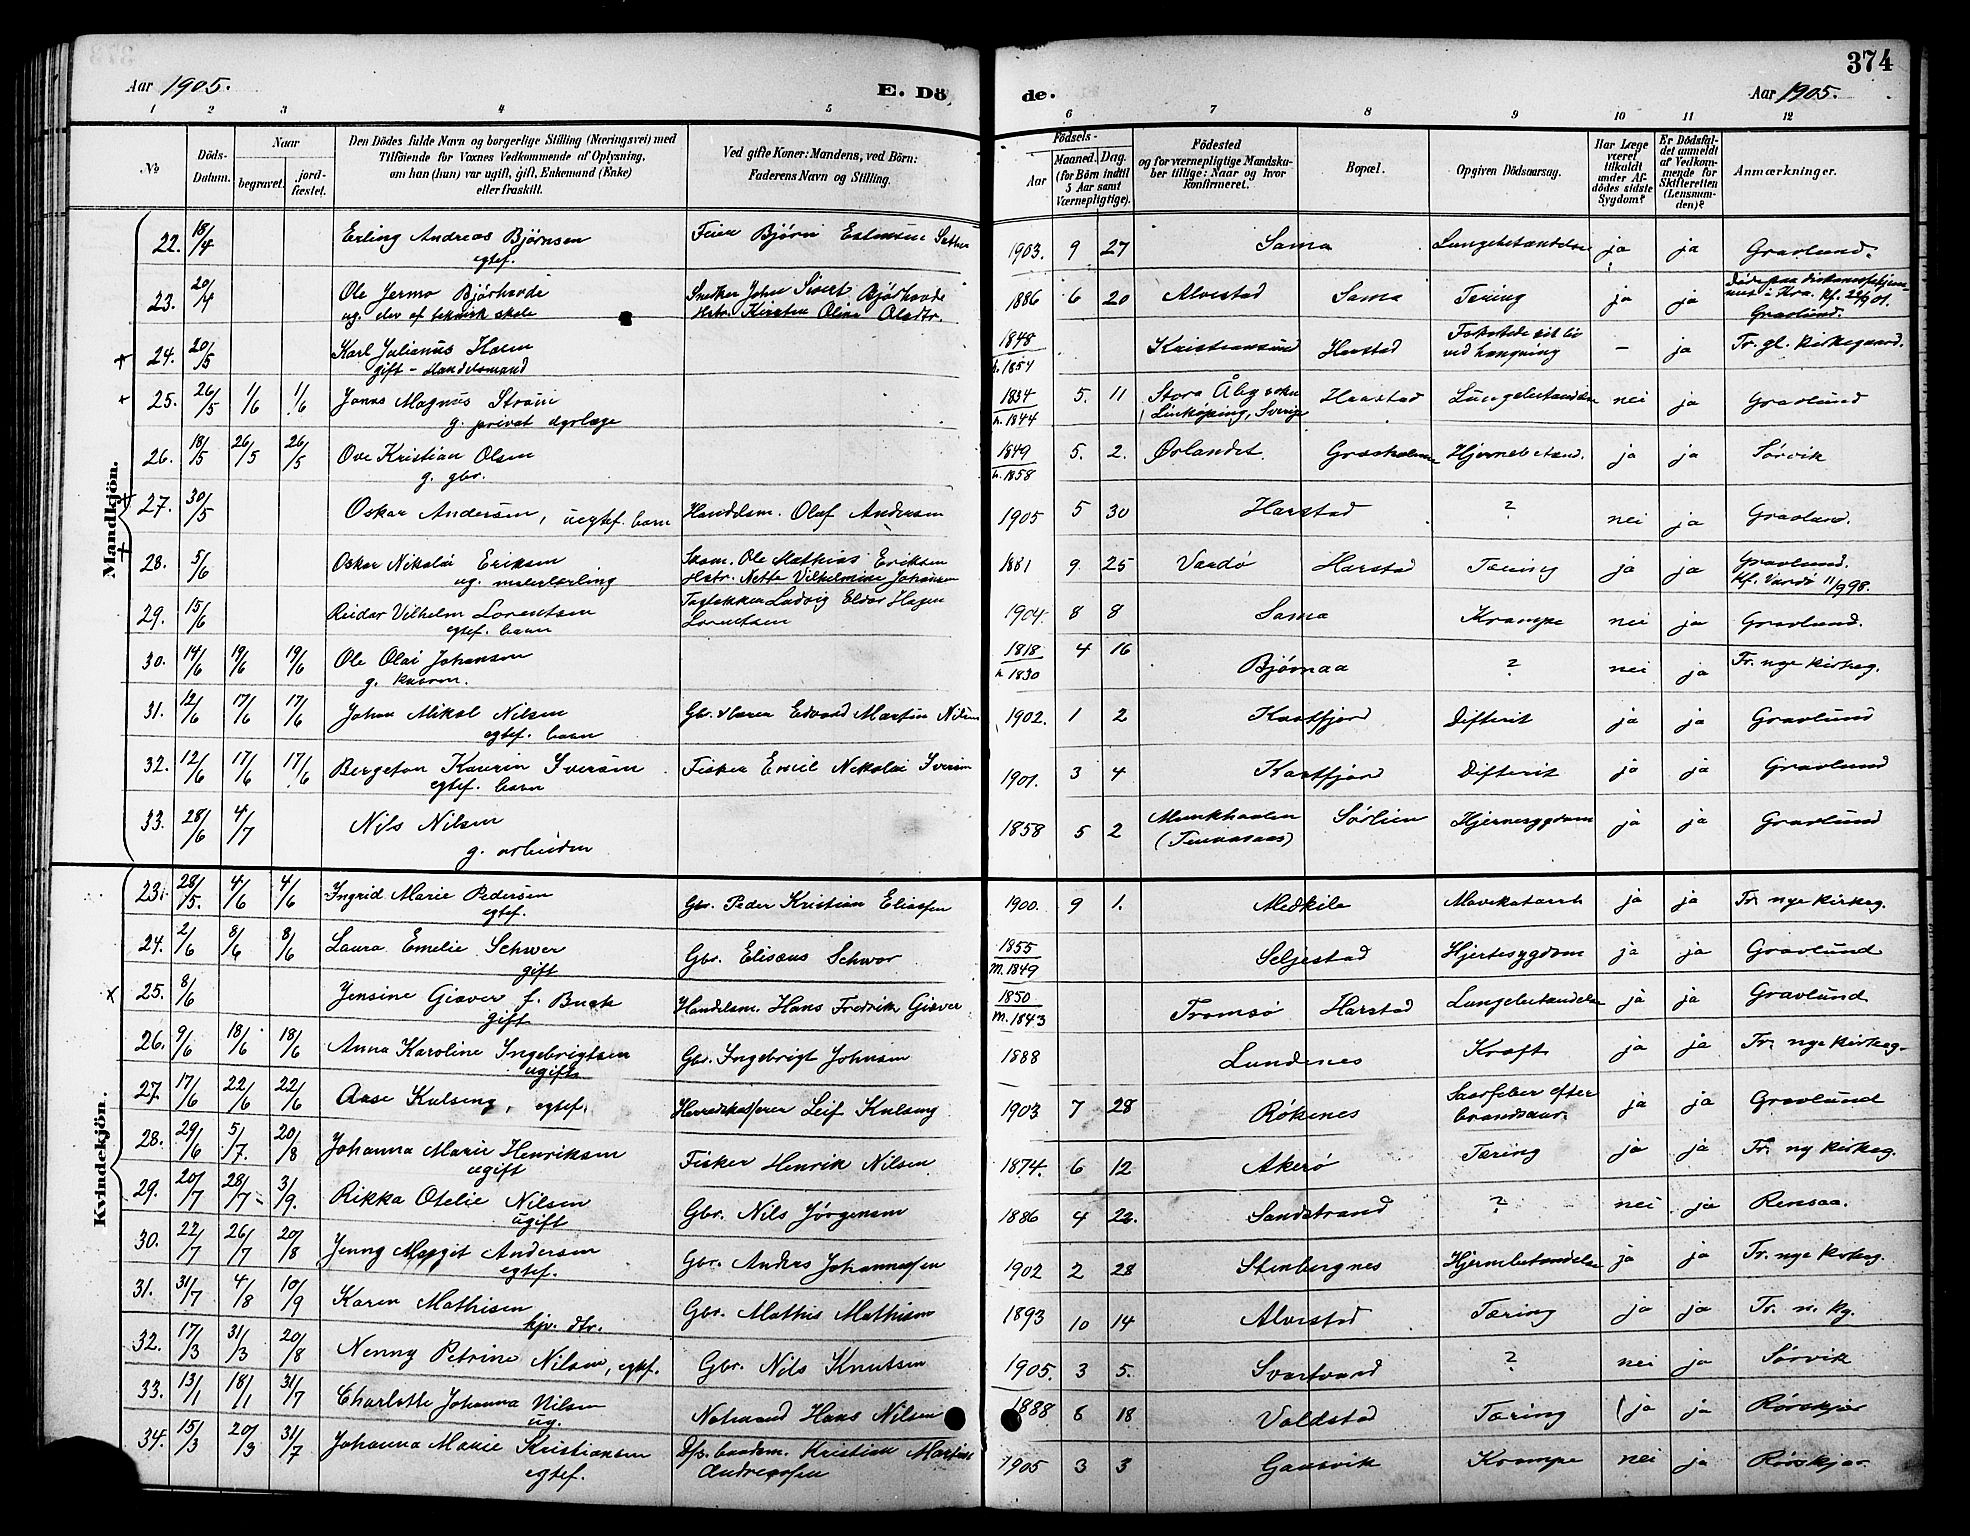 374
Aar 1905.
E. Dö
de.
Aar 1905.
1 2 3 4 5 6 7 8 9 10 11 12
No
Döds-Datum.
Naar
begravet.
jordfæstet.
Den Dödes fulde Navn og borgerlige Stilling (Næringsvei) med
Tilföiende for Voxnes Vedkommende af Oplysning,
om han (hun) var ugift, gift, Enkemand (Enke)
eller fraskilt.
Ved gifte Koner: Mandens, ved Börn:
Faderens Navn og Stilling.
Födsels-
Aar
Maaned. Dag.
(for Börn indtil
5 Aar samt
Værnepligtige).
Födested
og for værnepligtige Mandska-
ber tillige: Naar og hvor
konfirmeret.
Bopæl.
Opgiven Dödsaarsag.
Har Læge
været
tilkaldt
under Af-
dödes sidste
Sygdom?
Er Dödsfal-
det anmeldt
af Vedkom-
mende for
Skifteretten
(Lensman-
den)?
Anmærkninger.
Mandkjön.
22. 18/4 Erling Andreas Björnsen Feier Bjørn 1903. 9 27 Sama Lungebetændelse ja ja Gravlund.
egtef.
23. 20/4 Ole Jermo Bjørhovde Snedker Johs Sivert Bjørhovde 1886 6 20 Alvestad Sama Tæring ja ja
ug. elev af teknisk skole Hstr. Kirsten Olina Olsdtr. Gravlund.
24. 20/5 Karl Julianus Holm 1848 h. 1854 Kristiansund Harstad Forkortede sit liv – ja Tr. gl. kirkegaard.
gift - Handelsmand ved hængning
25. 26/5 1/6 1/6 Jonas Magnus Ström 1834 h. 1844 5. 11 Stora Åby sokn Harstad Lungebetændelse nei ja Gravlund
g. privat dyrlæge Linköping, Sverige
26. 18/5 26/5 26/5 Ove Kristian Olsen 1849 h. 1858 5. 2. Ørlandet. Grasholmen Hjernebetænd. ja ja Sørvik
g. gbr.
27. 30/5 Oskar Andersen, uegtef. barn Handelsm. Olaf Andersen 1905 5 30 Harstad ? nei ja Gravlund.
28. 5/6 Oskar Nikolai Eriksen Skom. Ole Mathias Eriksen 1881 9. 25 Vardø Harstad Tæring ja ja Gravlund.
ug. malerlærling Hstr. Nette Vilhelmine Johansen Kf. Vardø 11/9 98.
29. 15/6 Reidar Vilhelm Lorentsen Tagtækker Ludvig Eldor Hagen 1904. 8 8 Sama Krampe nei ja Gravlund.
egtef. barn Lorentsen
30. 14/6 19/6 19/6 Ole Olai Johansen 1818 h. 1830 4 16 Bjørnaa ? nei ja Tr. nye kirkeg.
31. 12/6 17/6 17/6 Johan Mikal Nilsen Edvard Martin Nilsen 1902. 1 2 Kastfjord Difterit ja ja Gravlund
egtef. barn
32. 12/6 17/6 17/6 Bergeton Kaurin Iversen Fisker Emil Nikolai Iversen 1901. 3 4 Kastfjord Difterit ja ja Gravlund
egtef. barn
33. 28/6 4/7 Nils Nilsen 1858 5 2 Sørlien Hjernesygdom ja ja Gravlund
g. arbeider
Kvindekjön.
23. 28/5. 4/6 4/6 Ingrid Marie Pedersen Gbr. Peder Kristian Eliassen 1900. 9 1. Medkile Mavekatarrh ja ja Tr. nye kirkeg.
egtef.
24. 2/6 8/6 8/6 Laura Emelie Schwer Gbr. Elisæus Schwer 1855 m. 1849 Seljestad Hjertesygdom ja ja Gravlund
gift
25. 8/6 Jensine Giæver f. Buck Handelsm. Hans Fredrik Giæver 1850 m. 1843 Tromsø Harstad Lungebetændelse ja ja Gravlund
gift
26. 9/6 18/6 18/6 Anna Karoline Ingebrigtsen Gbr. Ingebrigt Johnsen 1888 Lundenes Kræft ja ja Tr. nye kirkeg.
ugift
27. 17/6 22/6 22/6 Aase Kulseng, egtef. Herredskasserer Leif Kulseng 1903 7 28 Røkenes Saarfeber efter ja ja Gravlund
brandsaar.
28. 29/6 5/7 20/8 Johanna Marie Henriksen Fisker Henrik Nilsen 1874. 6 12 Akerø Tæring ja ja Tr. ny kirkeg.
ugift
29. 20/7 28/7 3/9. Rikka Otelie Nilsen Gbr. Nils Jørgensen 1886 4 22. Sandstrand ? nei ja Rensaa.
ugift
30. 22/7 26/7 20/8 Jenny Margit Andersen Gbr. Anders Johannessen 1902 2 28 Stenbergnes Hjernebetændelse ja ja Tr. nye kirkeg.
egtef.
31. 31/7 4/8 10/9 Karen Mathisen Gbr. Mathis Mathisen 1893 10 14 Alvestad Tæring ja ja Tr. n. kg.
hjv. dtr.
32. 17/3 31/3 20/8 Nenny Petrine Nilsen, egtef. Gbr. Nils Knutsen 1905. 3 5. Svartvand ? nei ja Sørvik
33. 13/1 18/1 31/7 Charlotte Johanna Nilsen Notmand Hans Nilsen 1888 6 18 Voldstad Tæring ja ja Rørskjær
ug.
34. 15/3 20/3 31/7 Johanna Marie Kristiansen Dfs. baadsm. Kristian Martin 1905 3 3 Gausvik Krampe nei ja Rørskjær.
egtef. Andreassen